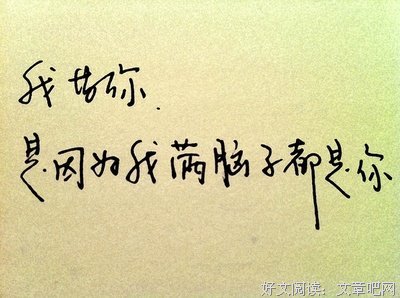 我 你.
是因为我满脑子都是你
好文阅读：文章吧网